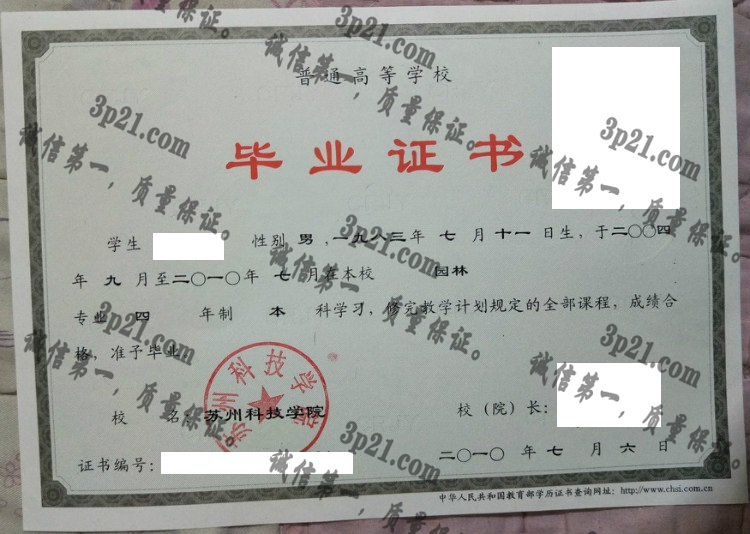 普通高等学校
毕业证书
学生 性别 男 ,一九八三年 七 月 十一 日生, 于二〇〇四
年 九 月至二〇一〇年 七 月在本校 园林
专业 四 年制 本 科学习, 修完教学计划规定的全部课程, 成绩合
格, 准予毕业
校 名: 苏州科技学院
校（院）长:
苏州科技学院
证书编号:
二〇一〇 年 七 月 六 日
中华人民共和国教育部学历证书查询网址: http://www.chsi.com.cn
3p21.com
诚信第一，质量保证。
3p21.com
诚信第一，质量保证。
3p21.com
诚信第一，质量保证。
3p21.com
诚信第一，质量保证。
3p21.com
诚信第一，质量保证。
3p21.com
诚信第一，质量保证。
3p21.com
诚信第一，质量保证。
3p21.com
诚信第一，质量保证。